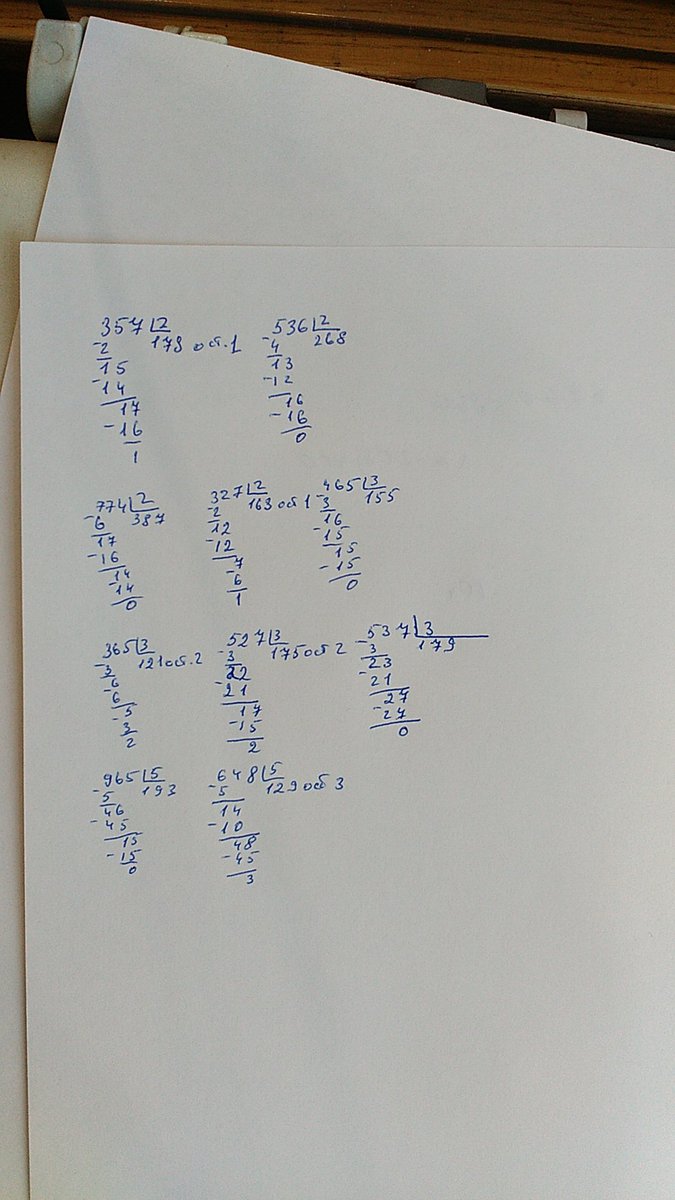 357 2 536 2
-2 178 об.1 -4 268
15 13
-14 -12
17 16
-16 -16
1 0
774 2 327 2 465 3
-6 387 -2 163 об 1 -3 155
17 12 16
-16 -12 -15
14 7 15
-14 -6 -15
0 1 0
365 3 527 3 537 3
-3 121 об.2 -3 175 об 2 -3 179
6 22 23
-6 -21 -21
5 17 27
-3 -15 -27
2 2 0
965 5 648 5
-5 193 -5 129 об 3
46 14
-45 -10
15 48
-15 -45
0 3